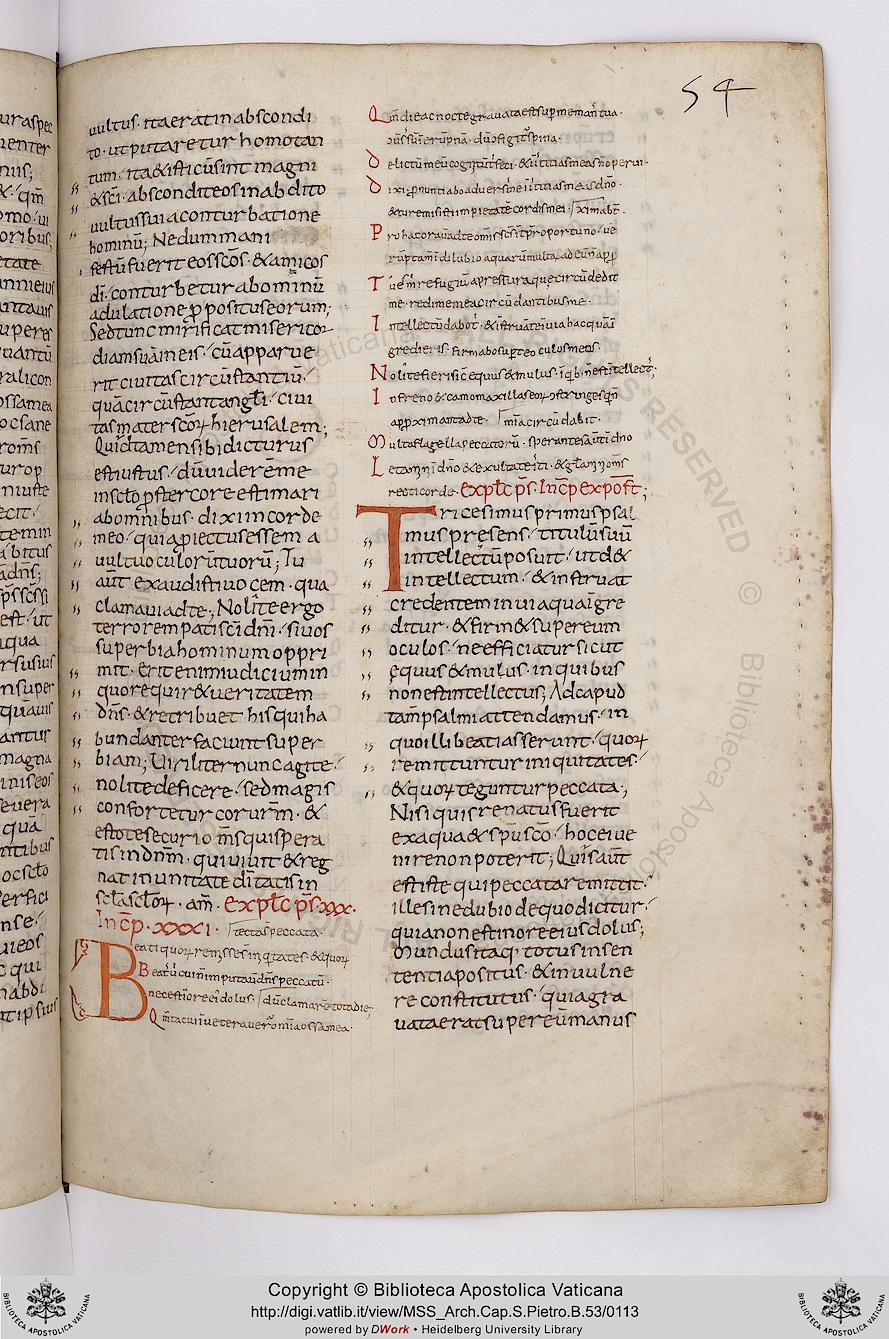 54
uultus · ita erat in abscondi
to · ut putaretur homo tan
tum · ita & isti cũ sint magni
& sc̃i · abscondit eos in abdito
uultus sui a conturbatione
hominũ; Ne dum mani
festũ fuerit eos sc̃os · & amicos
dĩ · conturbetur ab ominũ
adulatione p̱positus eorum;
Sed tunc mirificat miserico
diam suã in eis · cũ apparue
rit ciuitas circũstantiũ ·
quã circũstant angłi · ciui
tas mater scõꝝ hierusalem;
Quidam ensibi dicturus
est iustus · dũ uidere me
in sclo p̱ stercore estimari
ab omnibus · dixi in corde
meo · quia piectus essem a
uultu oculorũ tuorũ; Tu
aũt exaudisti uocem · qua
clamaui ad te; Nolite ergo
terrorem pati sc̃i dñi · si uos
superbia hominum oppri
mit · erit enim iudicium in
quo requir& ueritatem
dñs · & retribuet his qui ha
bundanter faciunt super
biam; Uiriliter nunc agite ·
nolite deficere · sed magis
confortetur cor urm̃ · &
estote securi om̃s qui spera
tis in dnm̃ · qui uiuit & reg
nat in unitate diĩtatis in
scła scłoꝝ · am̃ · Expłc p̃s · xxx ·
Incp̃ · xxxi · tecta s̃ peccata ·
Beati quoꝝ remisse s̃ iniq̃tates · & quoꝝ
Beat᷒ uir cui ñ imputauit dñs peccatũ ·
nec est in ore ei᷒ dolus · dũ clamarẽ tota die;
Qm̃ tacui inueterauer̃ omĩa ossa mea ·
Qm̃ die ac nocte grauata est sup̱ me man᷒ tua ·
delictũ meũ cognitũ t᷒ feci · & iniustitias meas ñ operui ·
dixi p̱nuntiabo aduersũ me iniustitias meas dño ·
& tu remisisti impietatẽ cordis mei · ximabt̃ ·
Pro hac orauit ad te om̃is sc̃s ĩ tp̱r oportuno · ue
rũptam̃ ĩ dilubio aquarũ multaꝝ ad eũ ñ ap̱p̱
Tu es m̃ refugiũ a p̱ressura que circũdedit
me · redime me a circũdantibus me ·
Intellectũ dabo t᷒ · & instruã te ĩ uia hac qua ĩ
gredieris · firmabo sup̱ te oculos meos ·
Nolite fieri sic̃ equus & mulus · ĩ q᷒b᷒ ñ est ĩtellect᷒;
In freno & camo maxillas eoꝝ c̃stringe · qui ñ
ap̱p̱ximant ad te · mĩa circũdabit ·
Multa flagella peccatorũ · sperantes aũt ĩ dño
Letamĩ ĩ dño & exultate iusti · & głamĩ om̃s
recti corde · Expłc p̃s · Incp̃ expos̃t;
Tricesimus primus psal
mus presens · titulũ suũ
intellectũ posuit · ut d&
intellectum · & instruat
credentem in uia qua ĩgre
ditur · & firm& super eum
oculos · ne efficiatur sicut
ęquus & mulus · in quibus
non est intellectus; Ad capud
tam̃ psalmi attendamus · in
quo illi beati asserunt · quoꝝ
remittuntur iniquitates ·
& quoꝝ teguntur peccata ·,
Nisi quis renatus fuerit
ex aqua & sp̃u sc̃o · hoc eue
nire non poterit; Quis aũt
est iste qui peccata remittit ·
ille sine dubio de quo dicitur ·
quia non est in ore eius dolus;
Mundus itaq; totus in sen
tentia positus · & in uulne
re constitutus · quia gra
uata erat super eũ manus
Copyright © Biblioteca Apostolica Vaticana
http://digi.vatlib.it/view/MSS_Arch.Cap.S.Pietro.B.53/0113
powered by DWork • Heidelberg University Library